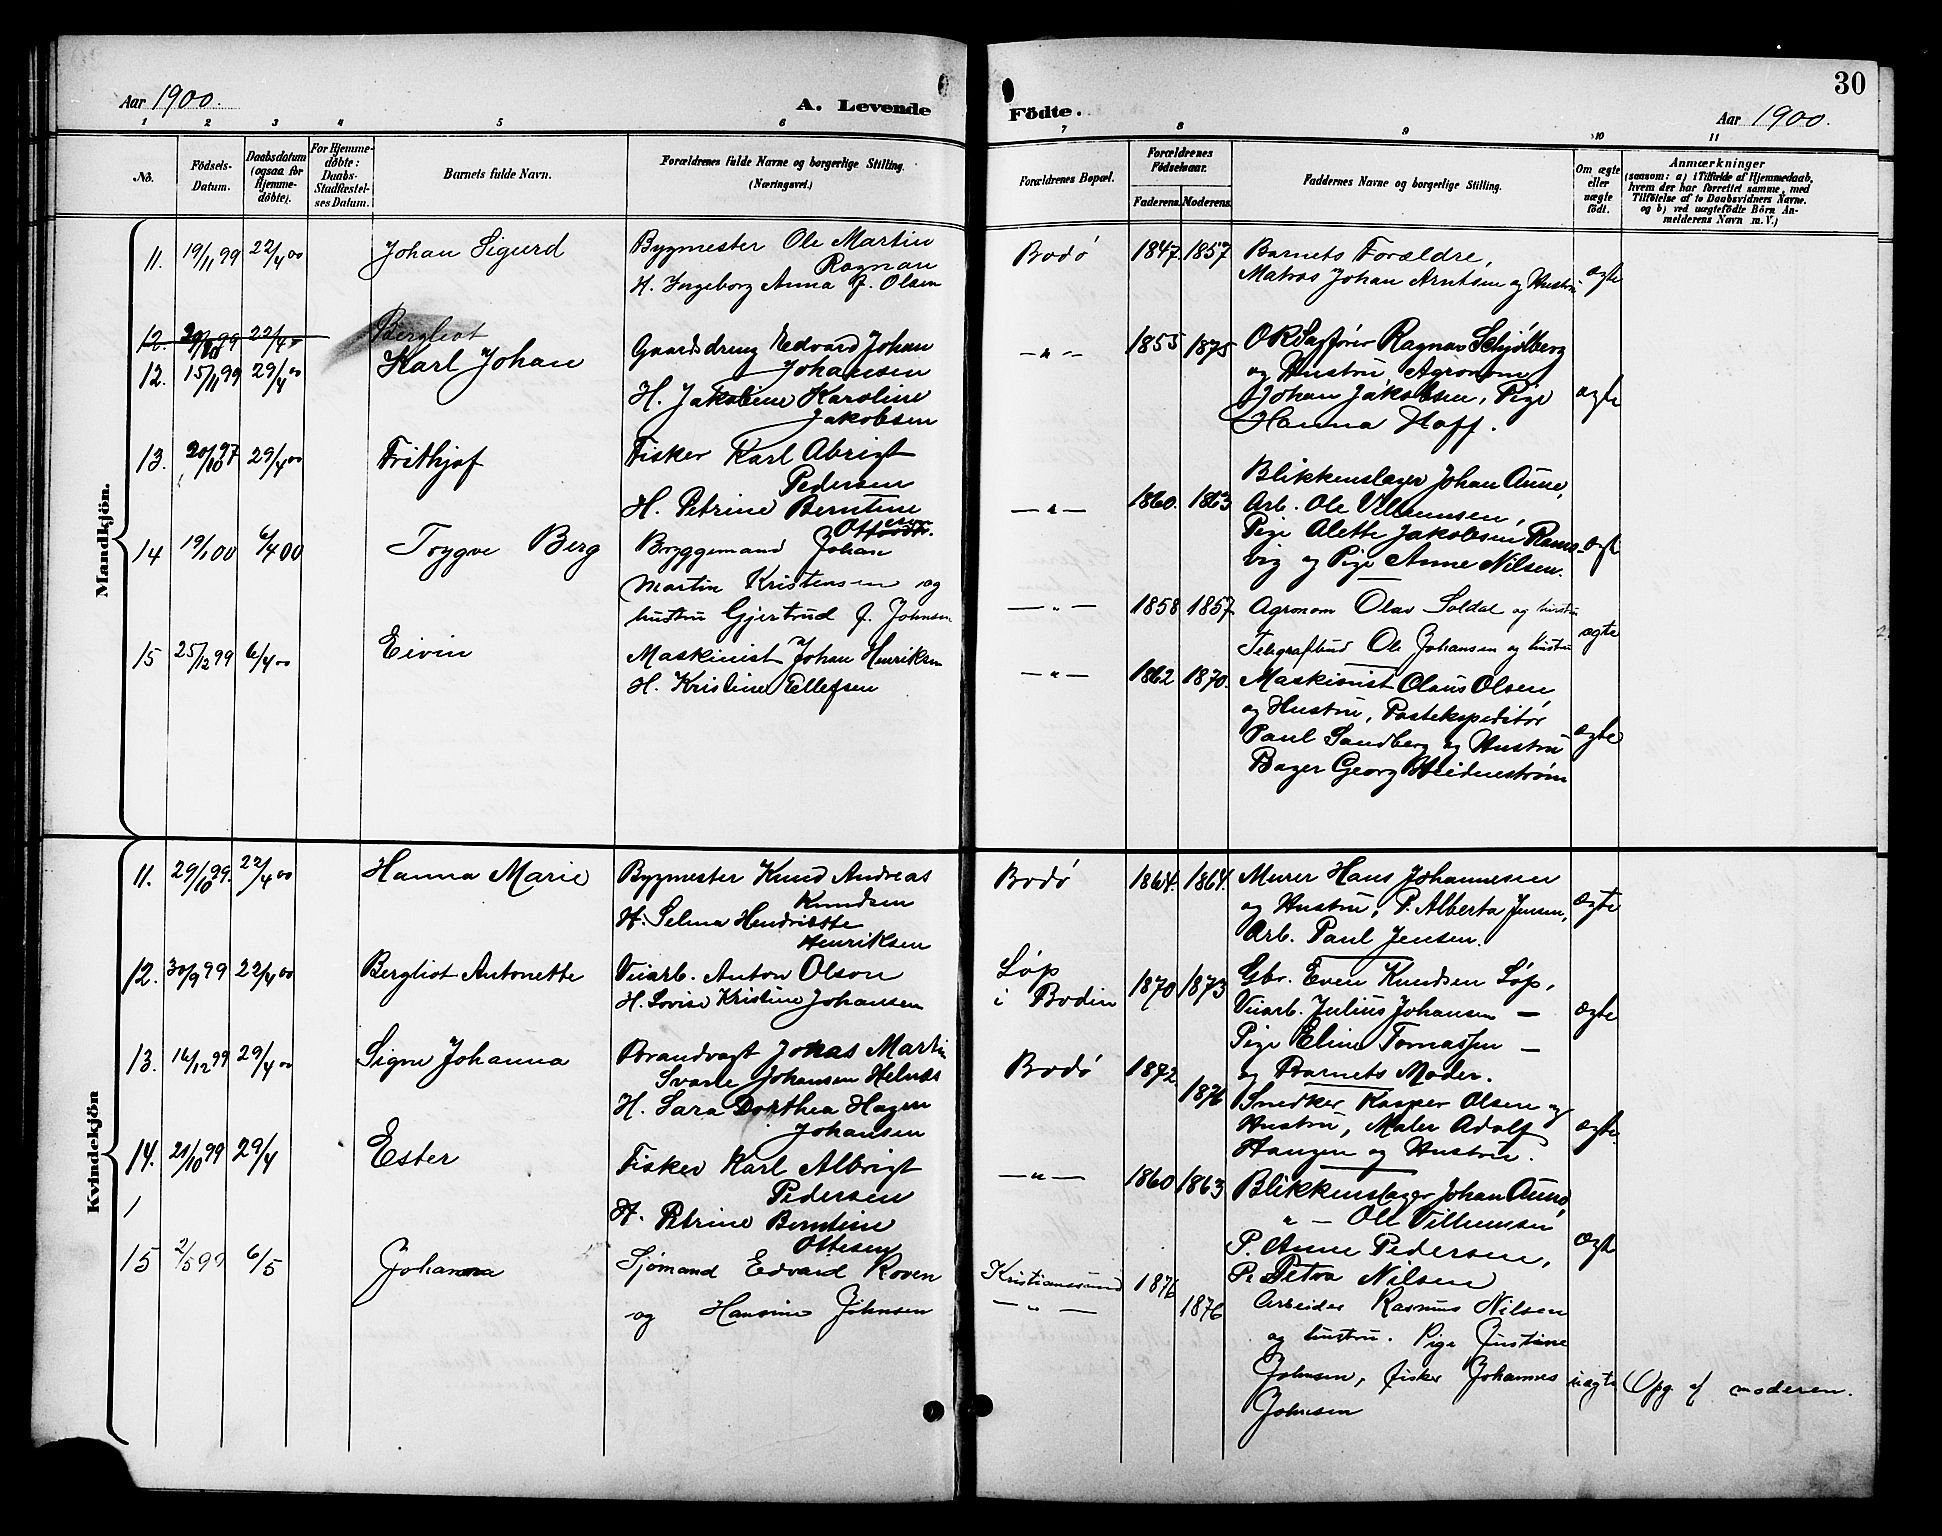 30
Aar 1900.
A. Levende
Födte.
Aar 1900.
1 2 3 4 5 6 7 8 9 10 11
No.
Födsels-Datum.
Daabsdatum (ogsaa for Hjemme-döbte).
For Hjemme-döbte: Daabs-Stadfæstel-ses Datum.
Barnets fulde Navn.
Forældrenes fulde Navne og borgerlige Stilling.
(Næringsvei.)
Forældrenes Bopæl.
Forældrenes Födselsaar.
Faderens. Moderens.
Faddernes Navne og borgerlige Stilling.
Om ægte eller uægte födt.
Anmærkninger
(saasom: a) i Tilfælde af Hjemmedaab,
hvem der har forrettet samme, med
Tilföielse af to Daabsvidners Navne.
og b) ved uægtefödte Börn An-
melderens Navn m. V.)
Mandkjön.
11. 19/11 99 22/4 00 Johan Sigurd
Bygmester Ole Martin
Ragnan
H. Ingeborg Anna f. Olsen
Bodö 1847. 1857
Barnets Forældre,
Matros Johan Arntsen og Hustru
ægte
12. 99 22/4 00 Bergliot
12. 15/11 99 29/4 00 Karl Johan
Gaardsdreng Edvard Johan
Johansen
H. Jakobine Karoline
Jakobsen
— " — 1855 1875
ORSagfører Ragnar Schjølberg
og Hustru Agronom
Johan Jakobsen, Pige
Hanna Hoff.
ægte
13. 20/10 97 29/4 00 Frithjof
Fisker Karl Abrigt
Pedersen
H. Petrine Berntine
— " — 1860. 1863
Blikkenslager Johan Aune,
Arb. Ole Villumsen,
Pige Alette Jakobsen Rams-
vig og Pige Anne Nilsen.
ægte
14 19/1 00 6/4 00 Trygve Berg
Bryggemand Johan
Martin Kristensen og
hustru Gjertrud f. Johnsen
— " — 1858 1857
Agronom Olav Soldal og hustru
Telegrafbud Ole Johansen og hustru
ægte
15 25/12 99 6/4 00 Eivin
Maskinist Johan Henriksen
H. Kristine Ellefsen
— " — 1862 1870.
Maskinist Claus Olsen
og Hustru, Postekspeditør
Paul Sandberg og Hustru
Bager Georg Heidenstrøm
ægte
Kvindekjön
11. 29/10 99. 22/4 00 Hanna Marie
Bygmester Knud Andreas
Knudsen
H. Selma Hendriette
Henriksen
Bodö 1864. 1864.
Murer Hans Johannesen
og Hustru, P. Alberta Jensen,
Arb. Paul Jensen.
ægte
12. 30/9 99 22/4 00 Bergliot Antonette
Veiarb. Anton Olson
H. Lovise Kristine Johansen
Løp
i Bodin 1870 1873
Gbr. Even Knudsen Løp,
Veiarb. Julius Johansen —
Pige Eline Tomassen —
og Barnets Moder.
ægte
13. 16/12 99 29/4 00 Signe Johanna
Brandvagt Jonas Martin
Svarte Johansen Helnes
H. Sara Dorthea Hagen
Johansen
Bodö 1872 1876
Snedker Kasper Olsen og
Hustru, Maler Adolf
Hangen og Hustru.
ægte
14. 21/10 99 29/4 Ester
Fisker Karl Albrigt
Pedersen
H. Petrine Berntine
Ottesen
— " — 1860 1863
Blikkenslager Johan Aune,
" — Ole Villumsen
P. Anne Pedersen,
P. Petra Nilsen
ægte
15 2/5 99 6/5 Johanna
Sjømand Edvard Roven
og Hansine Johnsen
Kristianssund 1876
— " — 1876
Arbeider Rasmus Nilsen
og hustru. Pige Justine
Johnsen, fisker Johannes
Johnsen
uægte
Opg af moderen.